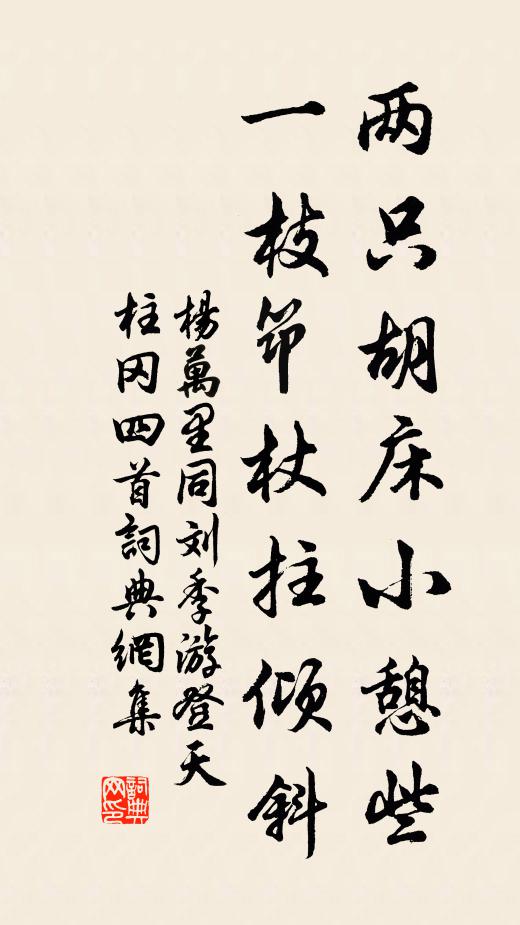 两只胡床小憩些
一枝筇杖拄倾斜
楊萬里同刘季游登天
柱冈四首詞典網集
詞典
网印